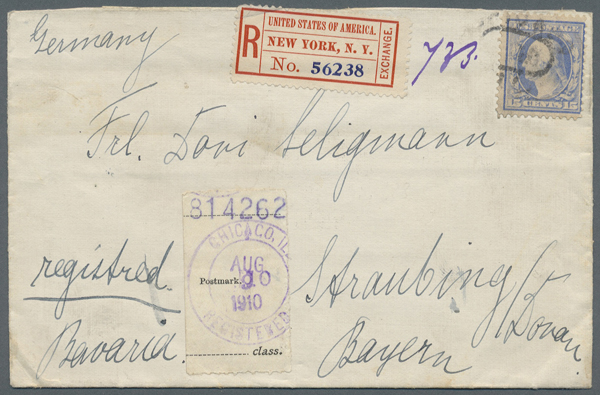 Germany
R
UNITED STATES OF AMERICA.
NEW YORK, N. Y.
No. 56238
EXCHANGE.
POSTAGE
Frl. Dori Seligmann
814262
CHICAGO, ILL
AUG
Postmark.
1910
REGISTERED
class.
registred
Bavaria
Straubing
Donau
Bayern